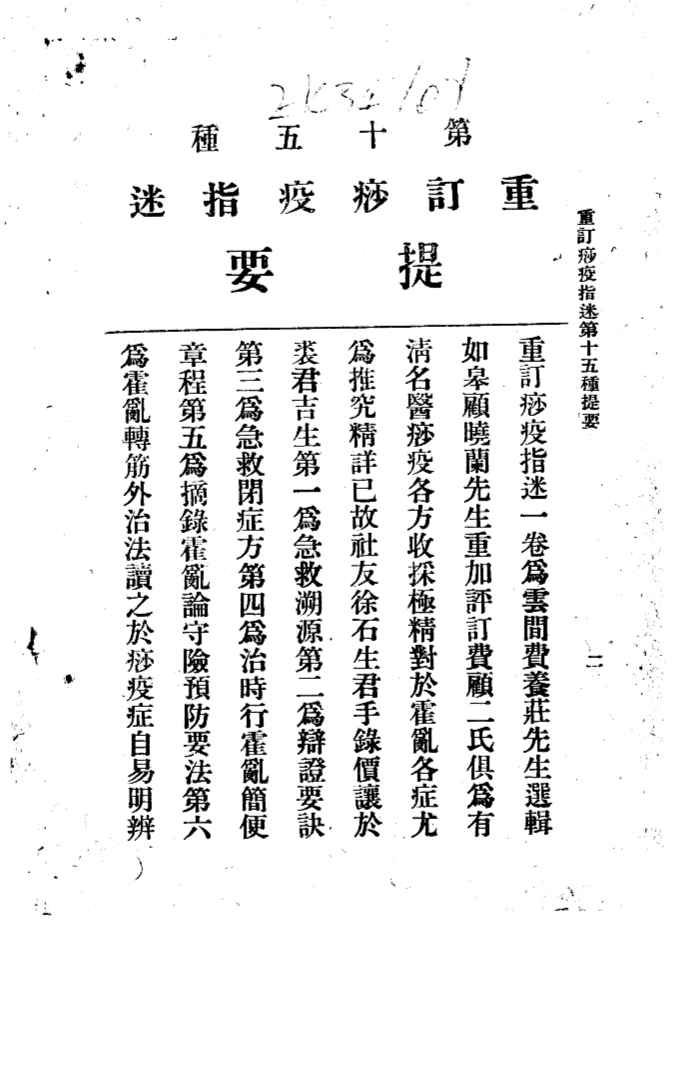 第十五種
重訂痧疫指迷
提要
重訂痧疫指迷第十五種提要
重訂痧疫指迷一卷爲雲間費養莊先生選輯
如皋顧曉蘭先生重加評訂費顧二氏俱爲有
淸名醫痧疫各方收採極精對於霍亂各症尤
爲推究精詳已故社友徐石生君手錄價讓於
裘君吉生第一爲急救溯源第二爲辯證要訣
第三爲急救閉症方第四爲治時行霍亂簡便
章程第五爲摘錄霍亂論守險預防要法第六
爲霍亂轉筋外治法讀之於痧疫症自易明辨
二